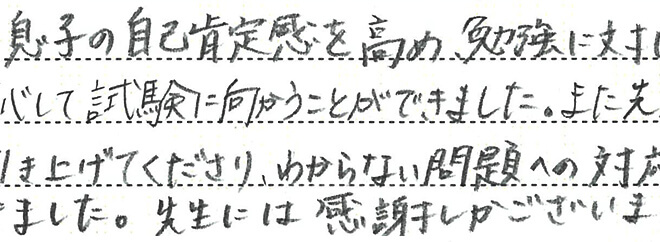 息子の自己肯定感を高め、勉強に対し
心して試験に向かうことができました。また先
引き上げてくださり、わからない問題への対応
ました。先生には感謝しかございま